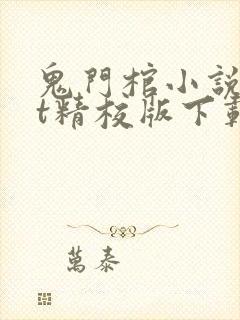 鬼門棺小說
t精校版下載
萬泰